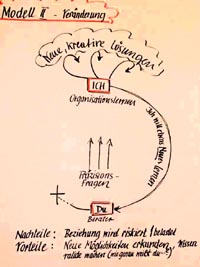 Modell II - Veränderung
Neue, kreative Lösungen!
ICH
Organisationslernen
Ich will etwas Neues lernen
Fragen
Du
Berater
Nachteile: Beziehung wird riskiert / belastet
Vorteile: Neue Möglichkeiten erkunden, Wissen
valide machen